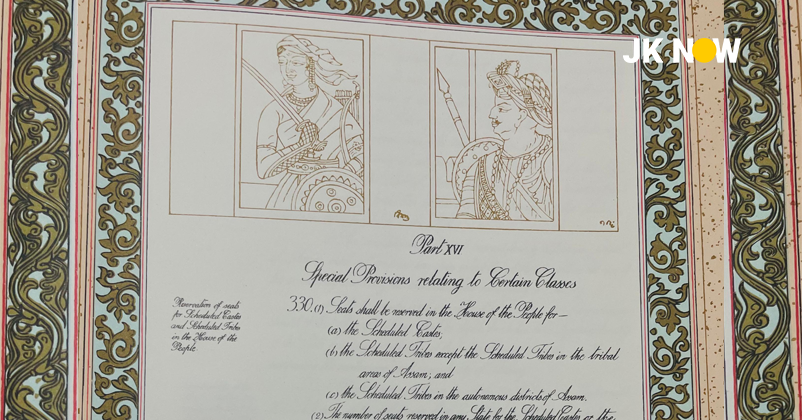 JK NOW
Part XVI
Special Provisions relating to Certain Classes
Reservation of seats
for Scheduled Castes
and Scheduled Tribes
in the House of the
People.
330.(1) Seats shall be reserved in the House of the People for—
(a) the Scheduled Castes;
(b) the Scheduled Tribes except the Scheduled Tribes in the tribal
areas of Assam; and
(c) the Scheduled Tribes in the autonomous districts of Assam.
(2) The number of seats reserved in any State for the Scheduled Castes or the